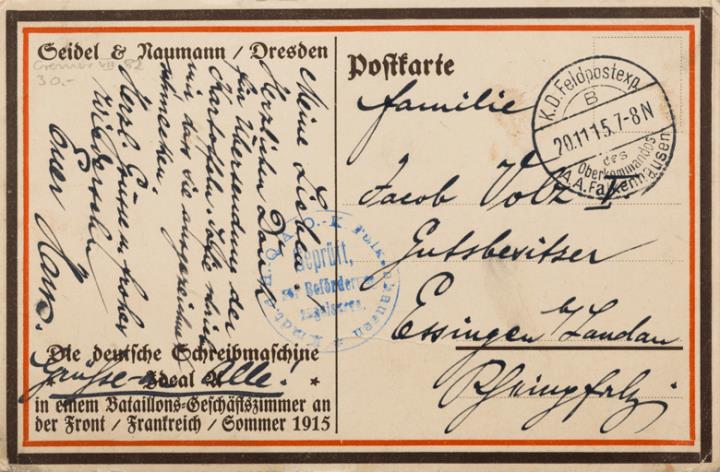 Seidel & Naumann / Dresden
Meine Lieben!
Herzlichen Dank
für Übersendung der
Kartoffeln.
mir die ausgezeichnet
schmecken.
Herzl. Grüsse u. frohes
Wiedersehn
Euer Hans.
Grüsse an Alle!
Die deutsche Schreibmaschine
Ideal A
in einem Bataillons-Geschäftszimmer an
der Front / Frankreich / Sommer 1915
Postkarte
K.D. Feldpostexp.
B
20.11.15.7-8N
des
Oberkommandos
A.A. Falkenhausen
Familie
Jacob Volz I.
Gutsbesitzer
Essingen b/ Landau
Rheinpfalz
Geprüft,
zur Beförderung
zugelassen.
Falkenhausen
Cremer VIII 82
30.-